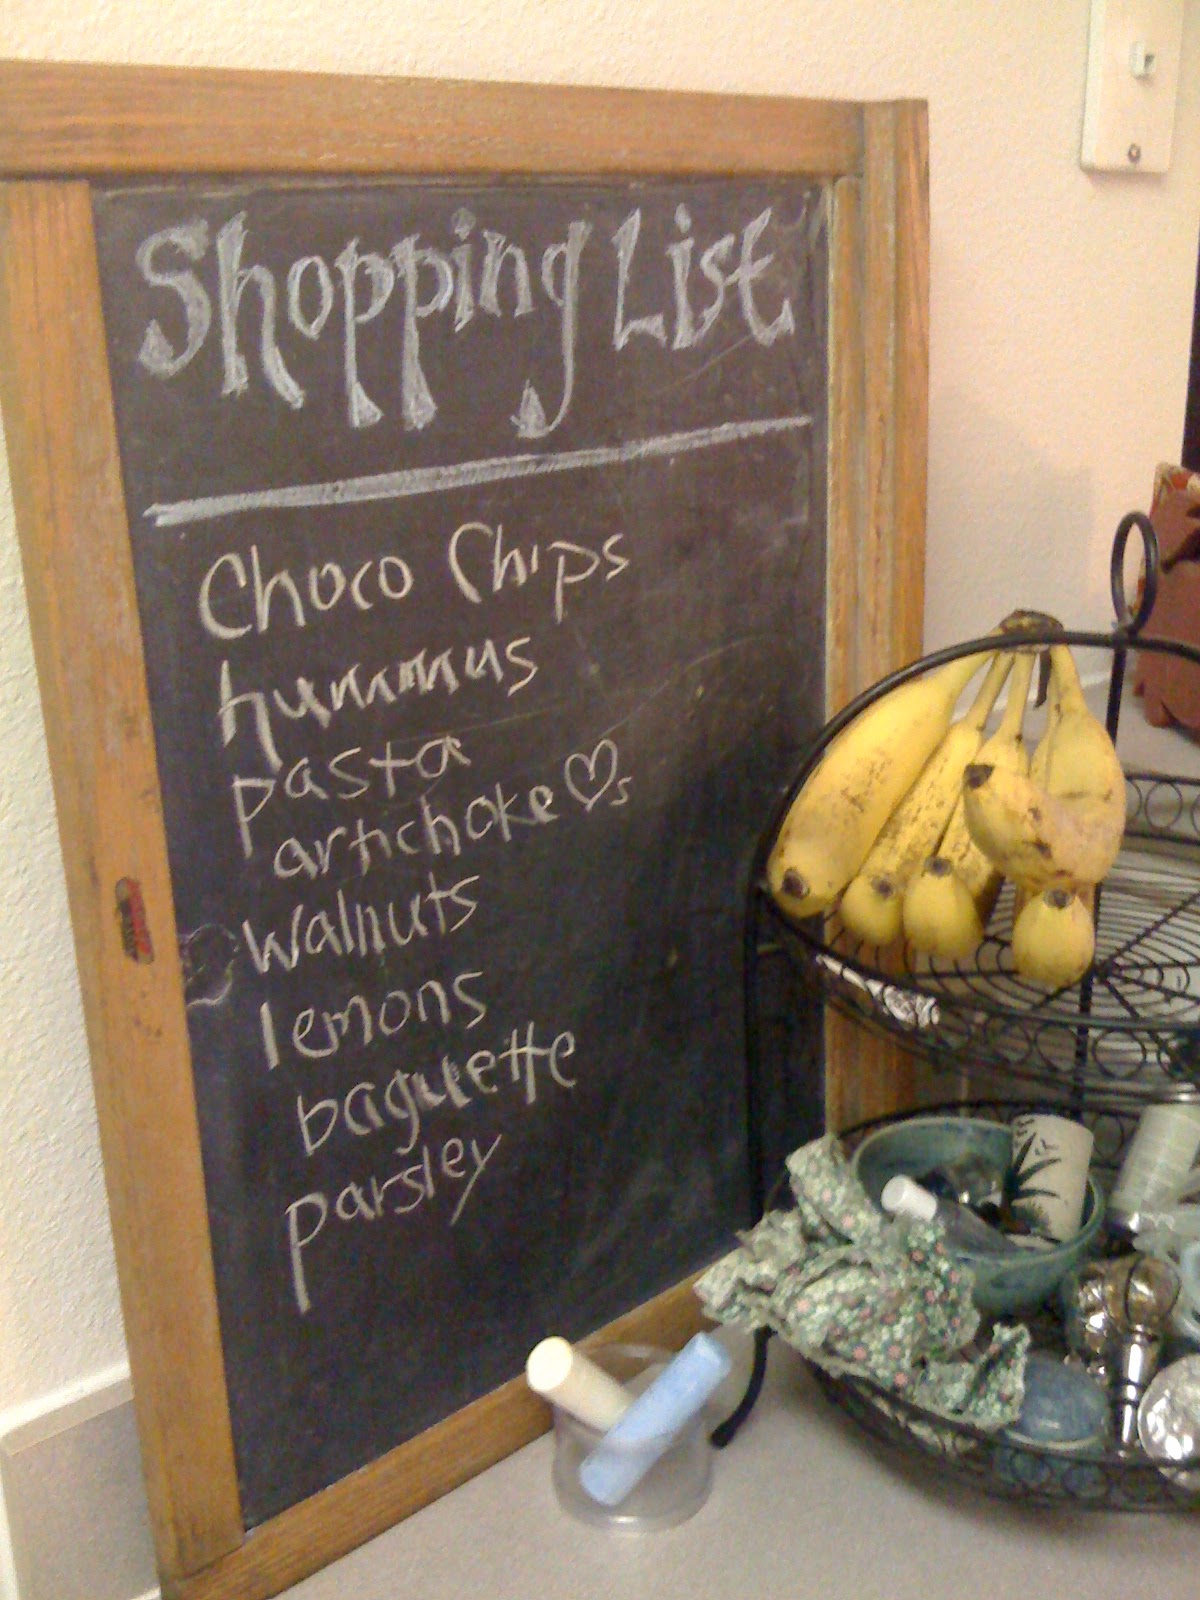 Shopping List
Choco Chips
hummus
pasta
artichoke ♡s
walnuts
lemons
baguette
parsley